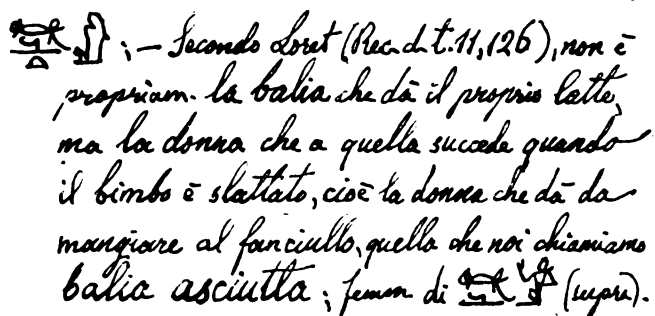 ; — Secondo Loret (Rec. d. t. 11, 126), non è
propriam. la balia che dà il proprio latte,
ma la donna che a quella succede quando
il bimbo è slattato, cioè la donna che dà da
mangiare al fanciullo, quella che noi chiamiamo
balia asciutta; femm di (supra).